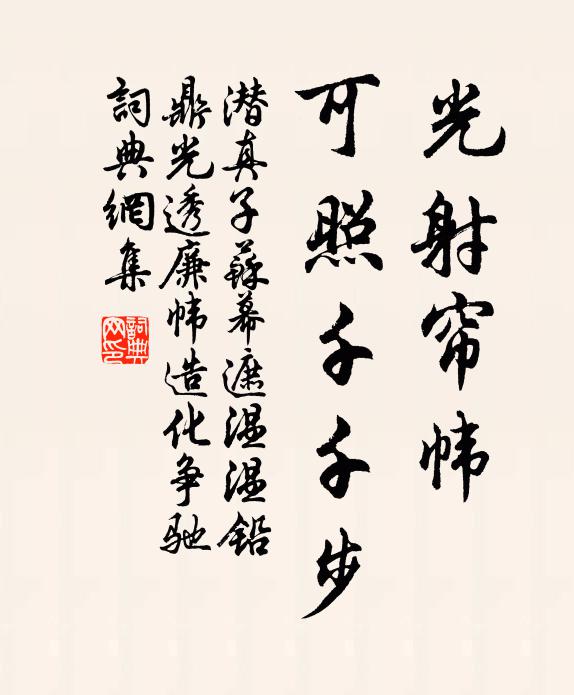 光射帘帏
可照千千步
潜真子蘇幕遮温温鉛
鼎光透廉帏造化争驰
詞典網集
詞典网印